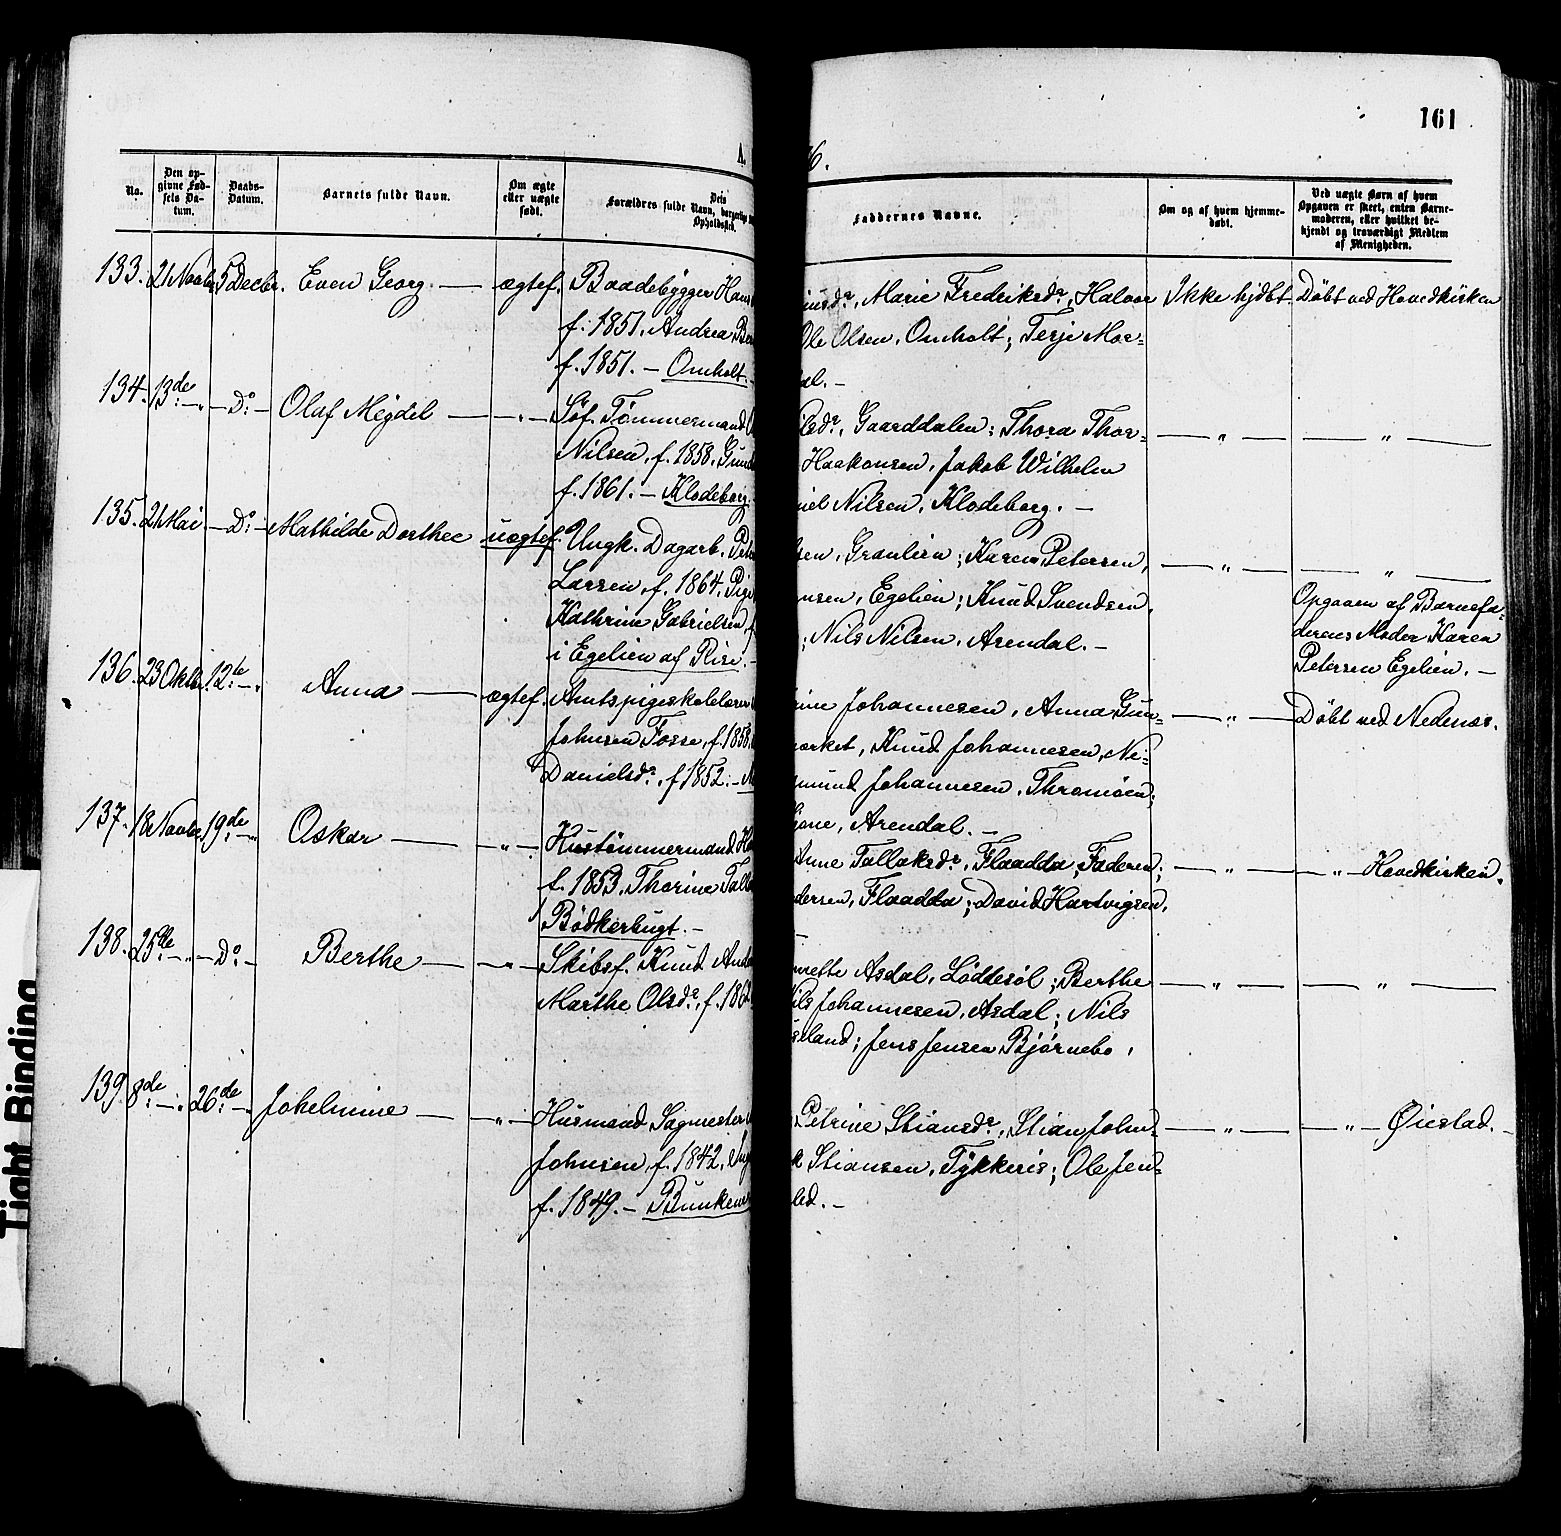 161
A. 6.
No.
Den op-
givne Fød-
sels Da-
tum.
Daabs-
Datum.
Barnets fulde Navn.
Om ægte
eller uægte
født.
Dets
Forældres fulde Navn, borgerlige
Opholdssted.
Faddernes Navne.
Om og af hvem hjemme-
døbt.
Ved uægte Børn af hvem
Opgaven er skeet, enten Barne-
moderen, eller hvilket be-
kjendt og troværdigt Medlem
af Menigheden.
133. 21 Novbr. 5 Decbr. Even Georg. — ægtef. Baadebygger Hans
f. 1851. Andrea
f. 1851. — Omholt.
Marie Fredriksdr, Halvor
Ole Olsen, Omholt; Terje Mor-
al. —
Ikke hjdbt Döbt ved Hovedkirken
134. 13de — " — Do: — Olaf Migdel — " — Søf. Tömmermand
Nilsen, f. 1858. Gund
f. 1861. — Klodeborg.
Gaarddalen; Thora Thor-
Haakonsen, Jakob Wilhelm
iel Nilsen, Klodeborg. —
— " — — " —
135. 21 Mai. — Do: — Mathilde Dorthee uægtef. Ungk. Dagarb. Peter
Larsen, f. 1864. Pige
Kathrine Gabrielsen, f
i Egelien af Rise. —
sen, Granlien; Karen Petersen,
nsen, Egelien; Knud Svendsen,
; Nils Nilsen, Arendal. —
— " — — " —
Opgaven af Barnefa-
derens Moder Karen
Petersen Egelien. —
136. 23 Oktbr. 12te — " Anna — ægtef. Amtspigeskolelærer
Johnsen Fosse, f. 1858,
Danielsdr, f 1852. —
rine Johannesen, Anna Gun-
arket, Knud Johannesen, Ne-
mund Johannesen, Thromöen;
Arendal. —
— " — Döbt ved Nedenæs.
137. 18 Novbr. 19de — " Oskar — " — Hustömmermand
f. 1853. Thorine Tall
Bödkerbugt. —
Anne Tallaksdr, Flaadda; Faderen;
dersen, Flaadda; David Hartvigsen,
—
— " — — " — Hovedkirken.
138. 25de — " — Do: — Berthe — " — Skibsf. Knud Ande
Marthe Olsdr, f. 186
nette Asdal, Löddesöl; Berthe
Nils Johannesen, Asdal; Nils
eland; Jens Jensen Björnebo,
— " — — " —
139. 8de — " 26de — " Johelmine — " — Husmand Sagmester
Johnsen, f. 1842,
f. 1849. —
Petrine Stiansdr, Stian John-
k Stiansen, Tykkeris; Ole Jen-
led. —
— " — — " — Öiestad. —
Tight Binding